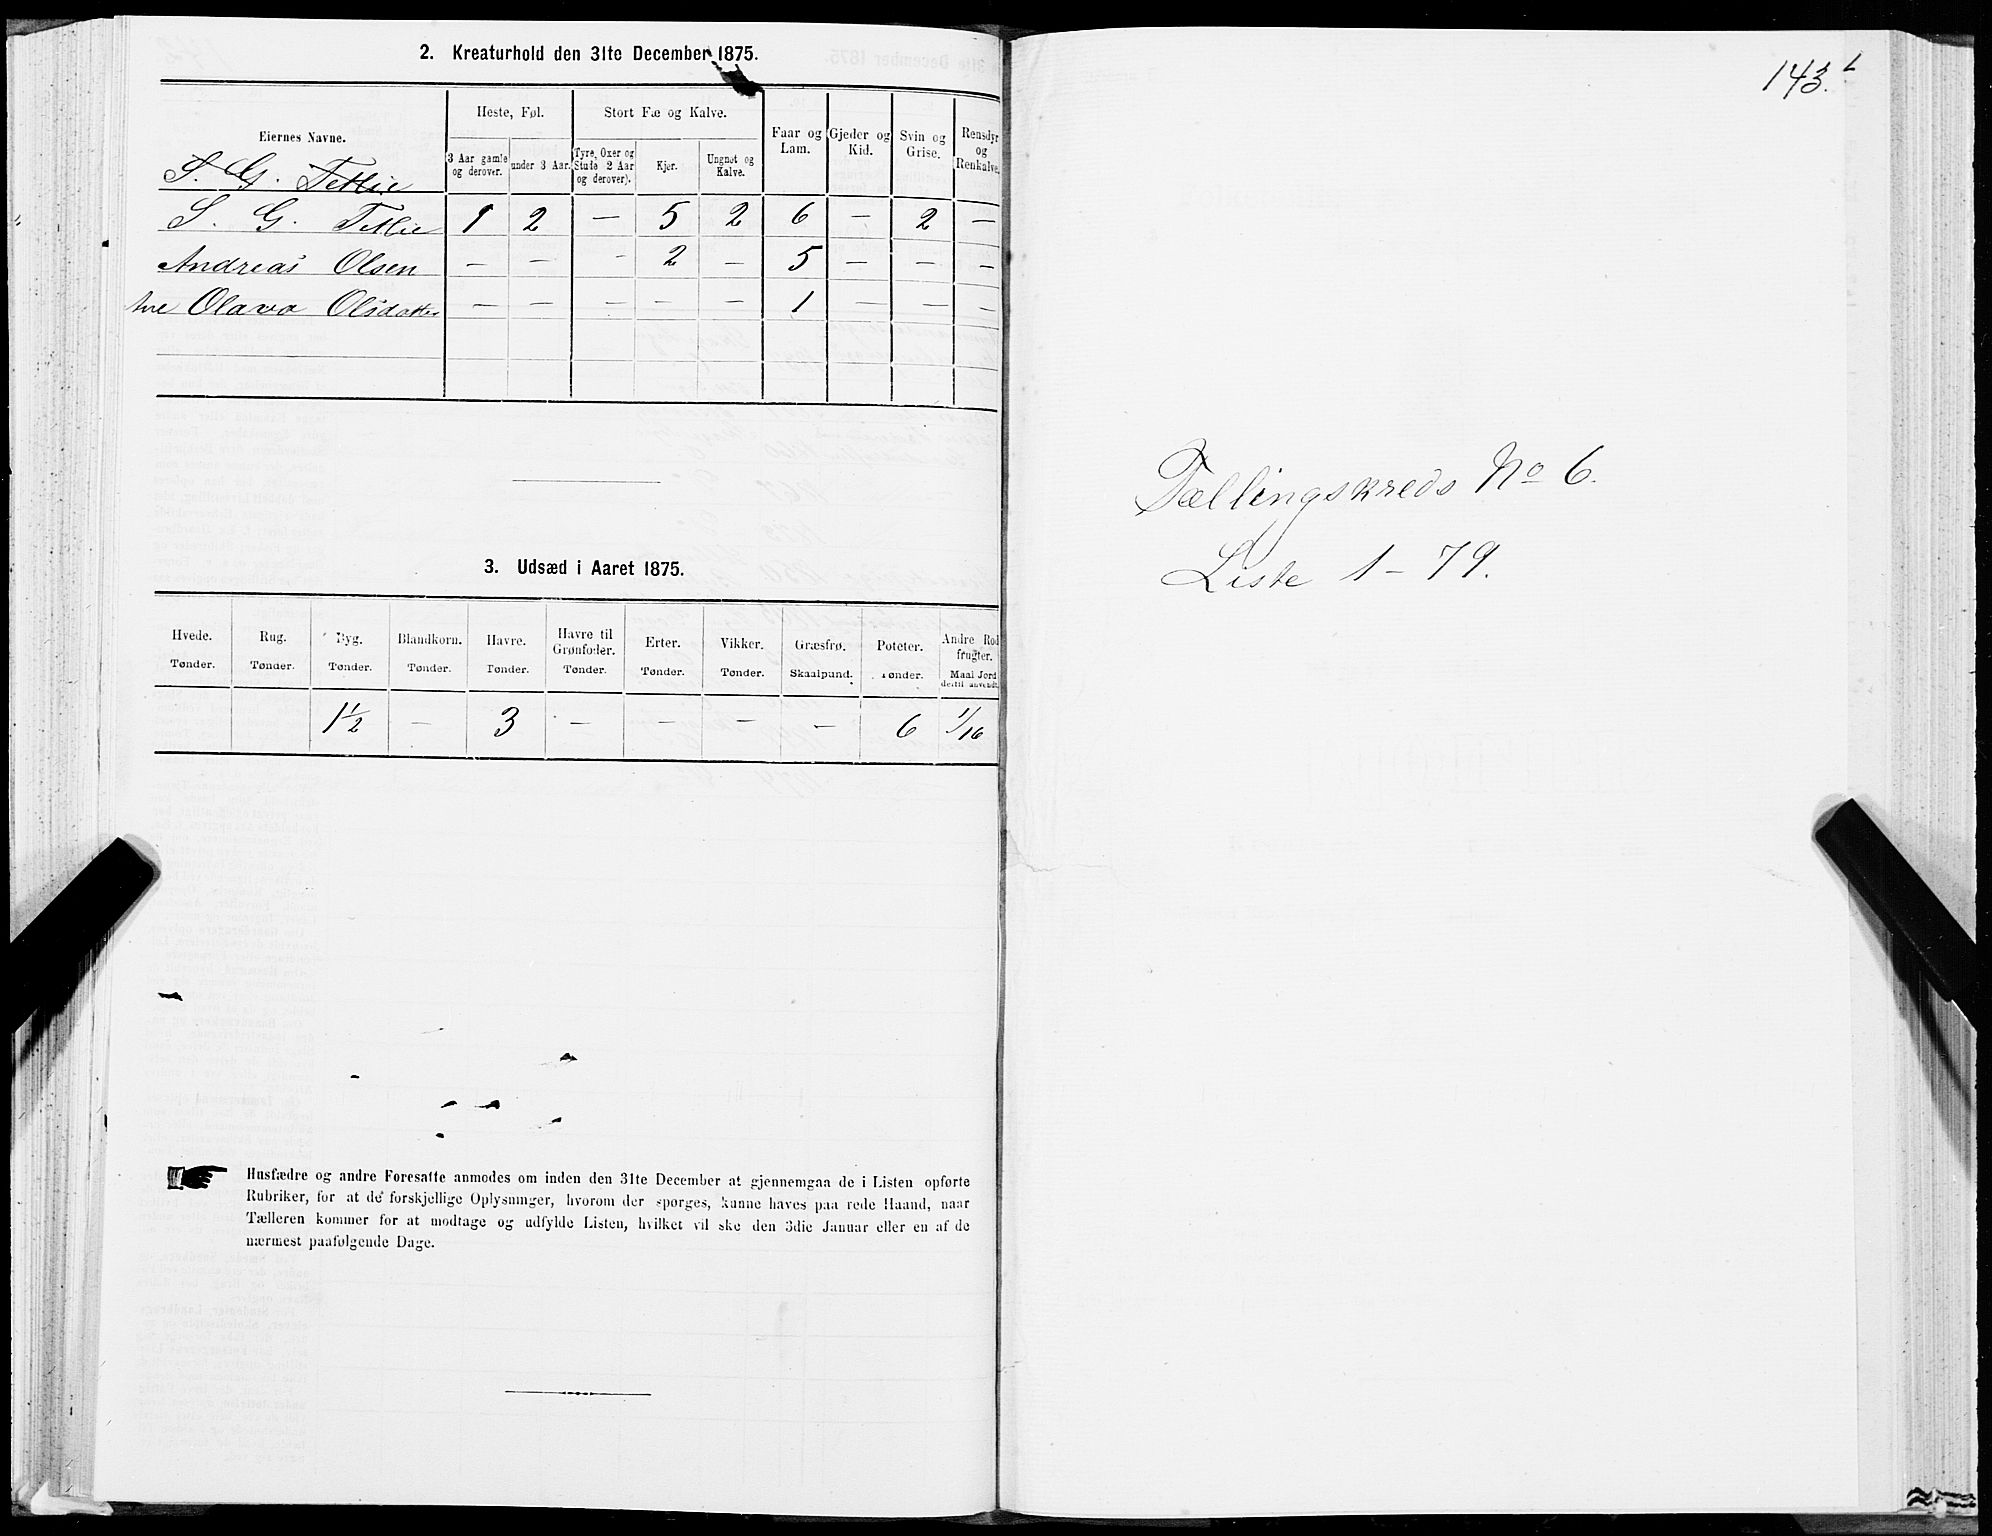 2. Kreaturhold den 31te December 1875.
Eiernes Navne. | Heste, Føl. | Stort Fæ og Kalve. | Faar og Lam. | Gjeder og Kid. | Svin og Grise. | Rensdyr og Renkalve.
3 Aar gamle og derover. | under 3 Aar. | Tyre, Oxer og Stude 2 Aar og derover). | Kjer. | Ungnøt og Kalve.
S. G. Tetlie
S. G. Tetlie 1 2 — 5 2 6 — 2 —
Andreas Olsen — — — 2 — 5 — — —
Ane Olava Olsdatter — — — — — 1 — — —
3. Udsæd i Aaret 1875.
Hvede. | Rug. | Byg. | Blandkorn. | Havre. | Havre til Grønfoder. | Erter. | Vikker. | Græsfrø. | Poteter. | Andre Rodfrugter.
Tønder. | Tønder. | Tønder. | Tønder. | Tønder. | Tønder. | Tønder. | Tønder. | Skaalpund. | Tønder. | Maal Jord dertil anvendt.
1½ — 3 — — — — 6 1/16
Husfædre og andre Foresatte anmodes om inden den 31te December at gjennemgaa de i Listen opførte
Rubriker, for at de forskjellige Oplysninger, hvorom der spørges, kunne haves paa rede Haand, naar
Tælleren kommer for at modtage og udfylde Listen, hvilket vil ske den 3die Januar eller en af de
nærmest paafølgende Dage.
143.
Tællingskreds No 6.
Liste 1 - 79.